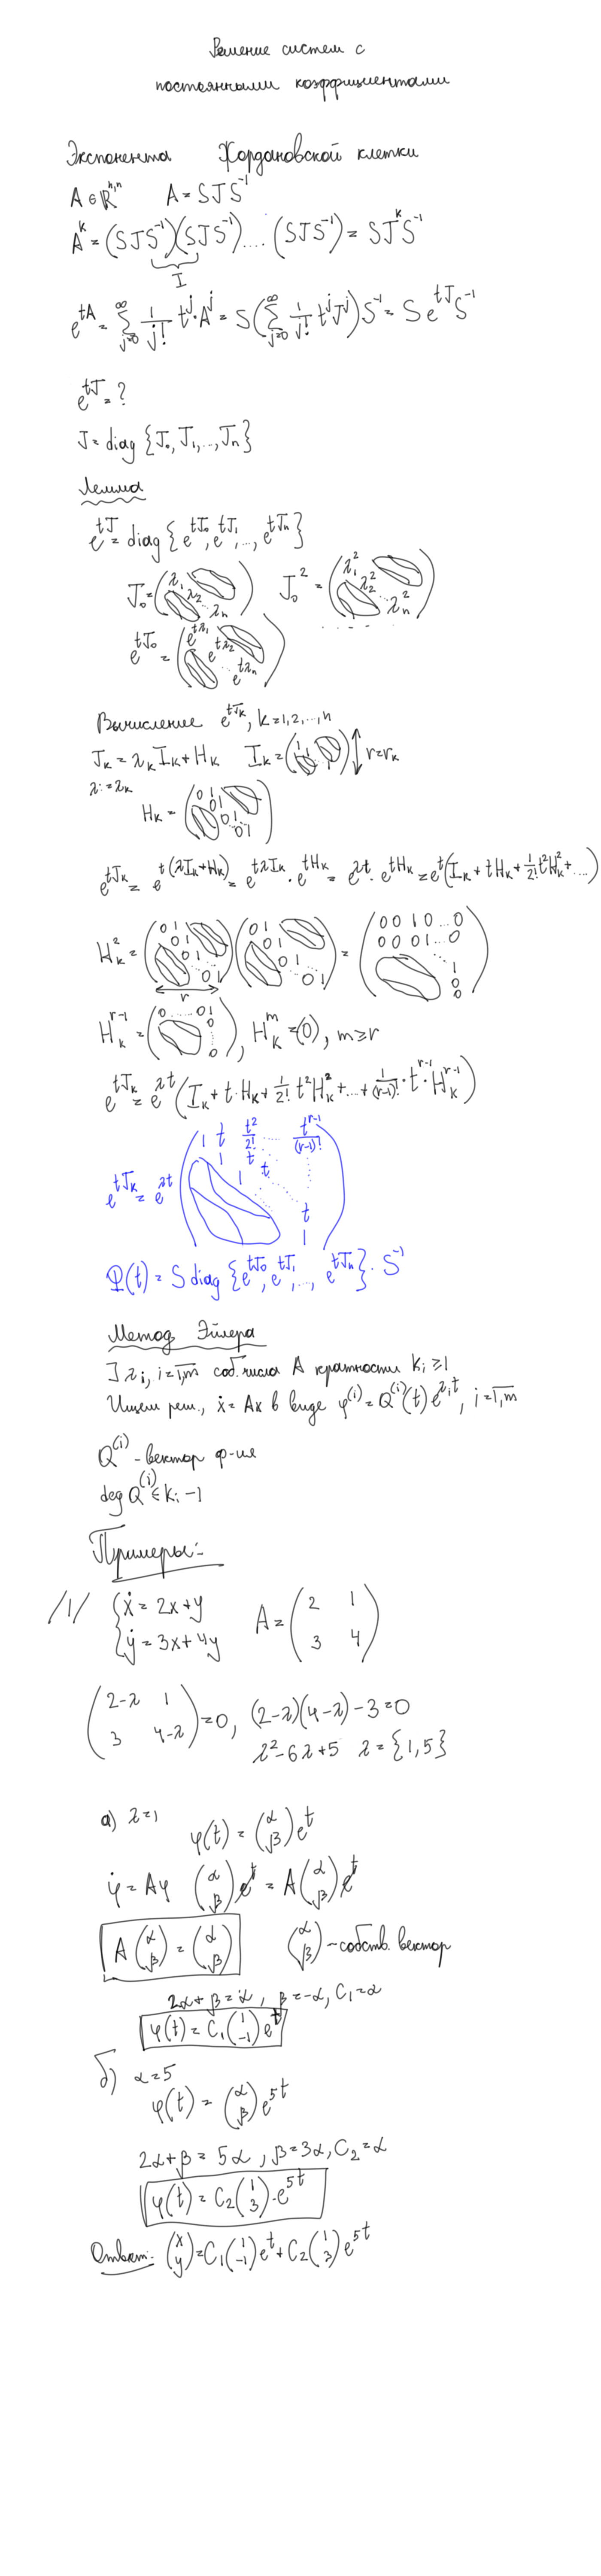 Решение систем с
постоянными коэффициентами
Экспонента Жордановской клетки
A ∈ ℝⁿ'ⁿ A = SJS⁻¹
Aᵏ = (SJS⁻¹)(SJS⁻¹)....(SJS⁻¹) = SJᵏS⁻¹
I
e^{tA} = ∑_{j=0}^{∞} 1/j! t^j · A^j = S(∑_{j=0}^{∞} 1/j! t^j J^j)S⁻¹ = S e^{tJ} S⁻¹
e^{tJ} = ?
J = diag {J₀, J₁, ..., Jₙ}
Лемма
e^{tJ} = diag {e^{tJ₀}, e^{tJ₁}, ..., e^{tJₙ}}
J₀ = (λ₁ λ₂ ... λₙ) J₀² = (λ₁² λ₂² ... λₙ²)
e^{tJ₀} = (e^{tλ₁} e^{tλ₂} ... e^{tλₙ})
Вычисление e^{tJₖ}, k = 1, 2, ..., n
Jₖ = λₖIₖ + Hₖ Iₖ = (1 1) r = rₖ
λ := λₖ
Hₖ = (0 1 0 1 0 1 0 1)
e^{tJₖ} = e^{t(λIₖ+Hₖ)} = e^{tλIₖ} · e^{tHₖ} = e^{λt} · e^{tHₖ} = e^{t}(Iₖ + tHₖ + 1/2! t²Hₖ² + ...)
Hₖ² = (0 1 0 1 ... 0 1)(0 1 0 1 ... 0 1) = (0 0 1 0 ... 0
0 0 0 1 ... 0
1
0
0)
r
Hₖ^{r-1} = (0 .... 0 1 0 0), Hₖ^m = (0), m ≥ r
e^{tJₖ} = e^{λt}(Iₖ + t·Hₖ + 1/2! t²Hₖ² + ... + 1/(r-1)! · t^{r-1} · Hₖ^{r-1})
e^{tJₖ} = e^{λt} (1 t t²/2! ... t^{r-1}/(r-1)!
1 t
1 t
t
1)
Φ(t) = S diag {e^{tJ₀}, e^{tJ₁}, ..., e^{tJₙ}} · S⁻¹
Метод Эйлера
∃ λᵢ, i = 1,m соб. числа A кратности kᵢ ≥ 1
Ищем реш., ẋ = Ax в виде φ⁽ⁱ⁾ = Q⁽ⁱ⁾(t) e^{λᵢt}, i = 1,m
Q⁽ⁱ⁾ - вектор ф-ия
deg Q⁽ⁱ⁾ ≤ kᵢ - 1
Примеры:
/1/ {ẋ = 2x + y
{ẏ = 3x + 4y A = (2 1
3 4)
(2-λ 1
3 4-λ) = 0, (2-λ)(4-λ) - 3 = 0
λ² - 6λ + 5 λ = {1, 5}
а) λ = 1
φ(t) = (α β) e^t
φ̇ = Aφ (α β) e^t = A (α β) e^t
A (α β) = (α β) (α β) - собств. вектор
2α + β = α, β = -α, C₁ = α
φ(t) = C₁ (1 -1) e^t
б) α = 5
φ(t) = (α β) e^{5t}
2α + β = 5α, β = 3α, C₂ = α
φ(t) = C₂ (1 3) · e^{5t}
Ответ: (x y) = C₁ (1 -1) e^t + C₂ (1 3) e^{5t}